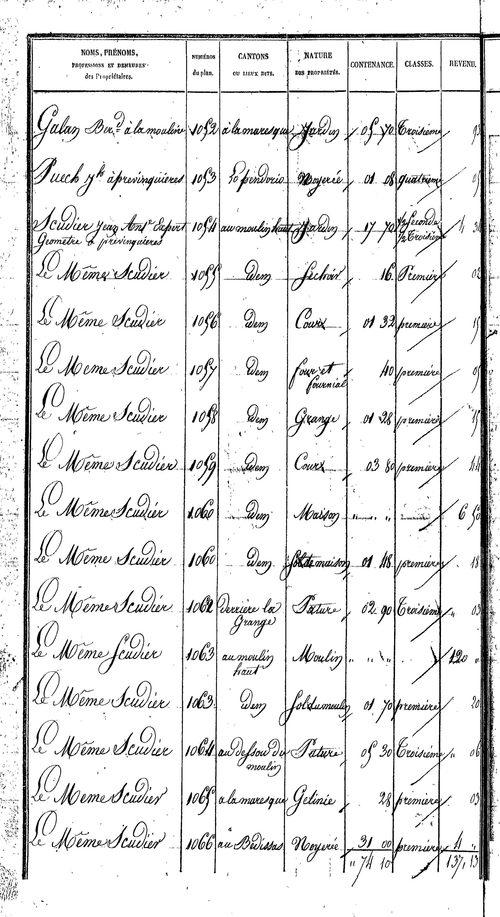 NOMS, PRÉNOMS, PROFESSIONS ET DEMEURES des Propriétaires. NUMÉROS du plan. CANTONS OU LIEUX DITS. NATURE DES PROPRIÉTÉS. CONTENANCE. CLASSES. REVENU.
Galan Bern.d à la mouline 1052 à la maresque Jardin 05 70 Troisieme
Puech à prevenquieres 1053 Noyeréé 01 08 quatrieme 05
Scudier Jean Ant.e Expert Géomètre à prevenquieres 1054 au moulin haut Jardin 17 70 1/2 Seconde 1/2 Troisieme 4
Le Même Scudier 1055 idem Séchoir 16 Premier 02
Le Même Scudier 1056 idem Cour 01 32 premiere 15
Le Même Scudier 1057 idem four et fournial 40 premiere 05
Le Même Scudier 1058 idem Grange 01 28 premiere 15
Le Même Scudier 1059 idem Cour 03 80 premiere 44
Le Même Scudier 1060 idem Maison " " 6 50
Le Même Scudier 1060 idem Sol de maison 01 48 premiere 18
Le Même Scudier 1062 derriere la Grange Pature 02 90 Troisieme 03
Le Même Scudier 1063 au moulin haut Moulin " " 120 "
Le Même Scudier 1063 idem Sol du moulin 01 70 premiere 20
Le Même Scudier 1064 au dessou du moulin Pature 05 30 Troisieme 06
Le Même Scudier 1065 à la maresque Gelinie 28 premiere 03
Le Même Scudier 1066 au Bédissas Noyeréé 31 00 premiere 4 "
" 74 10 137, 13